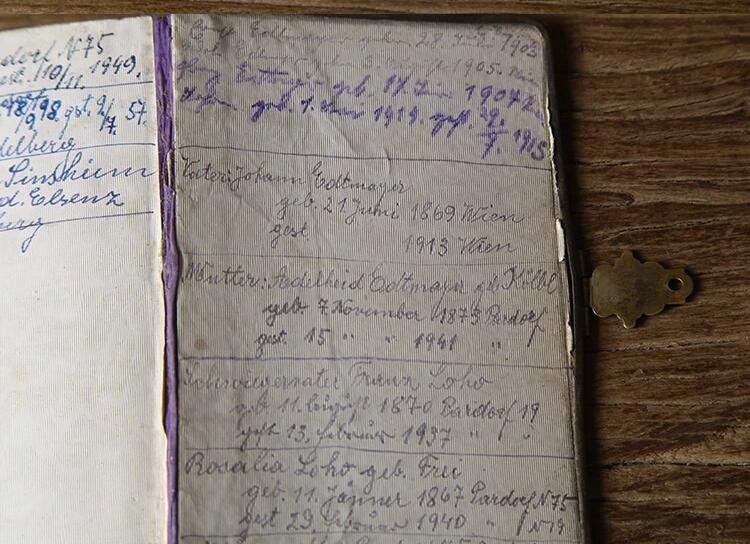 dorf N 75
gest. 10/11. 1949.
98 gst. 9/7. 57.
delberg
Sinsheim
d. Elsenz
burg
geb. 28. Juni 1903
1905.
geb. 17. Juni 1907
geb. 1. Juni 1914. gest. 1915
Vater: Johann Edtmayer
geb. 21 Juni 1869 Wien
gest 1913 Wien
Mutter: Adelheid Edtmayer geb. Kölbl
geb. 7 November 1873 Pardorf
gest. 15 " " 1941 "
Schwiegervater Franz Loho
geb. 11. August 1870 Pardorf 19
gest 13. Februar 1937 " "
Rosalia Loho geb. Frei
geb. 11. Jänner 1867 Pardorf N 75
gest 29. Februar 1940 " N 19